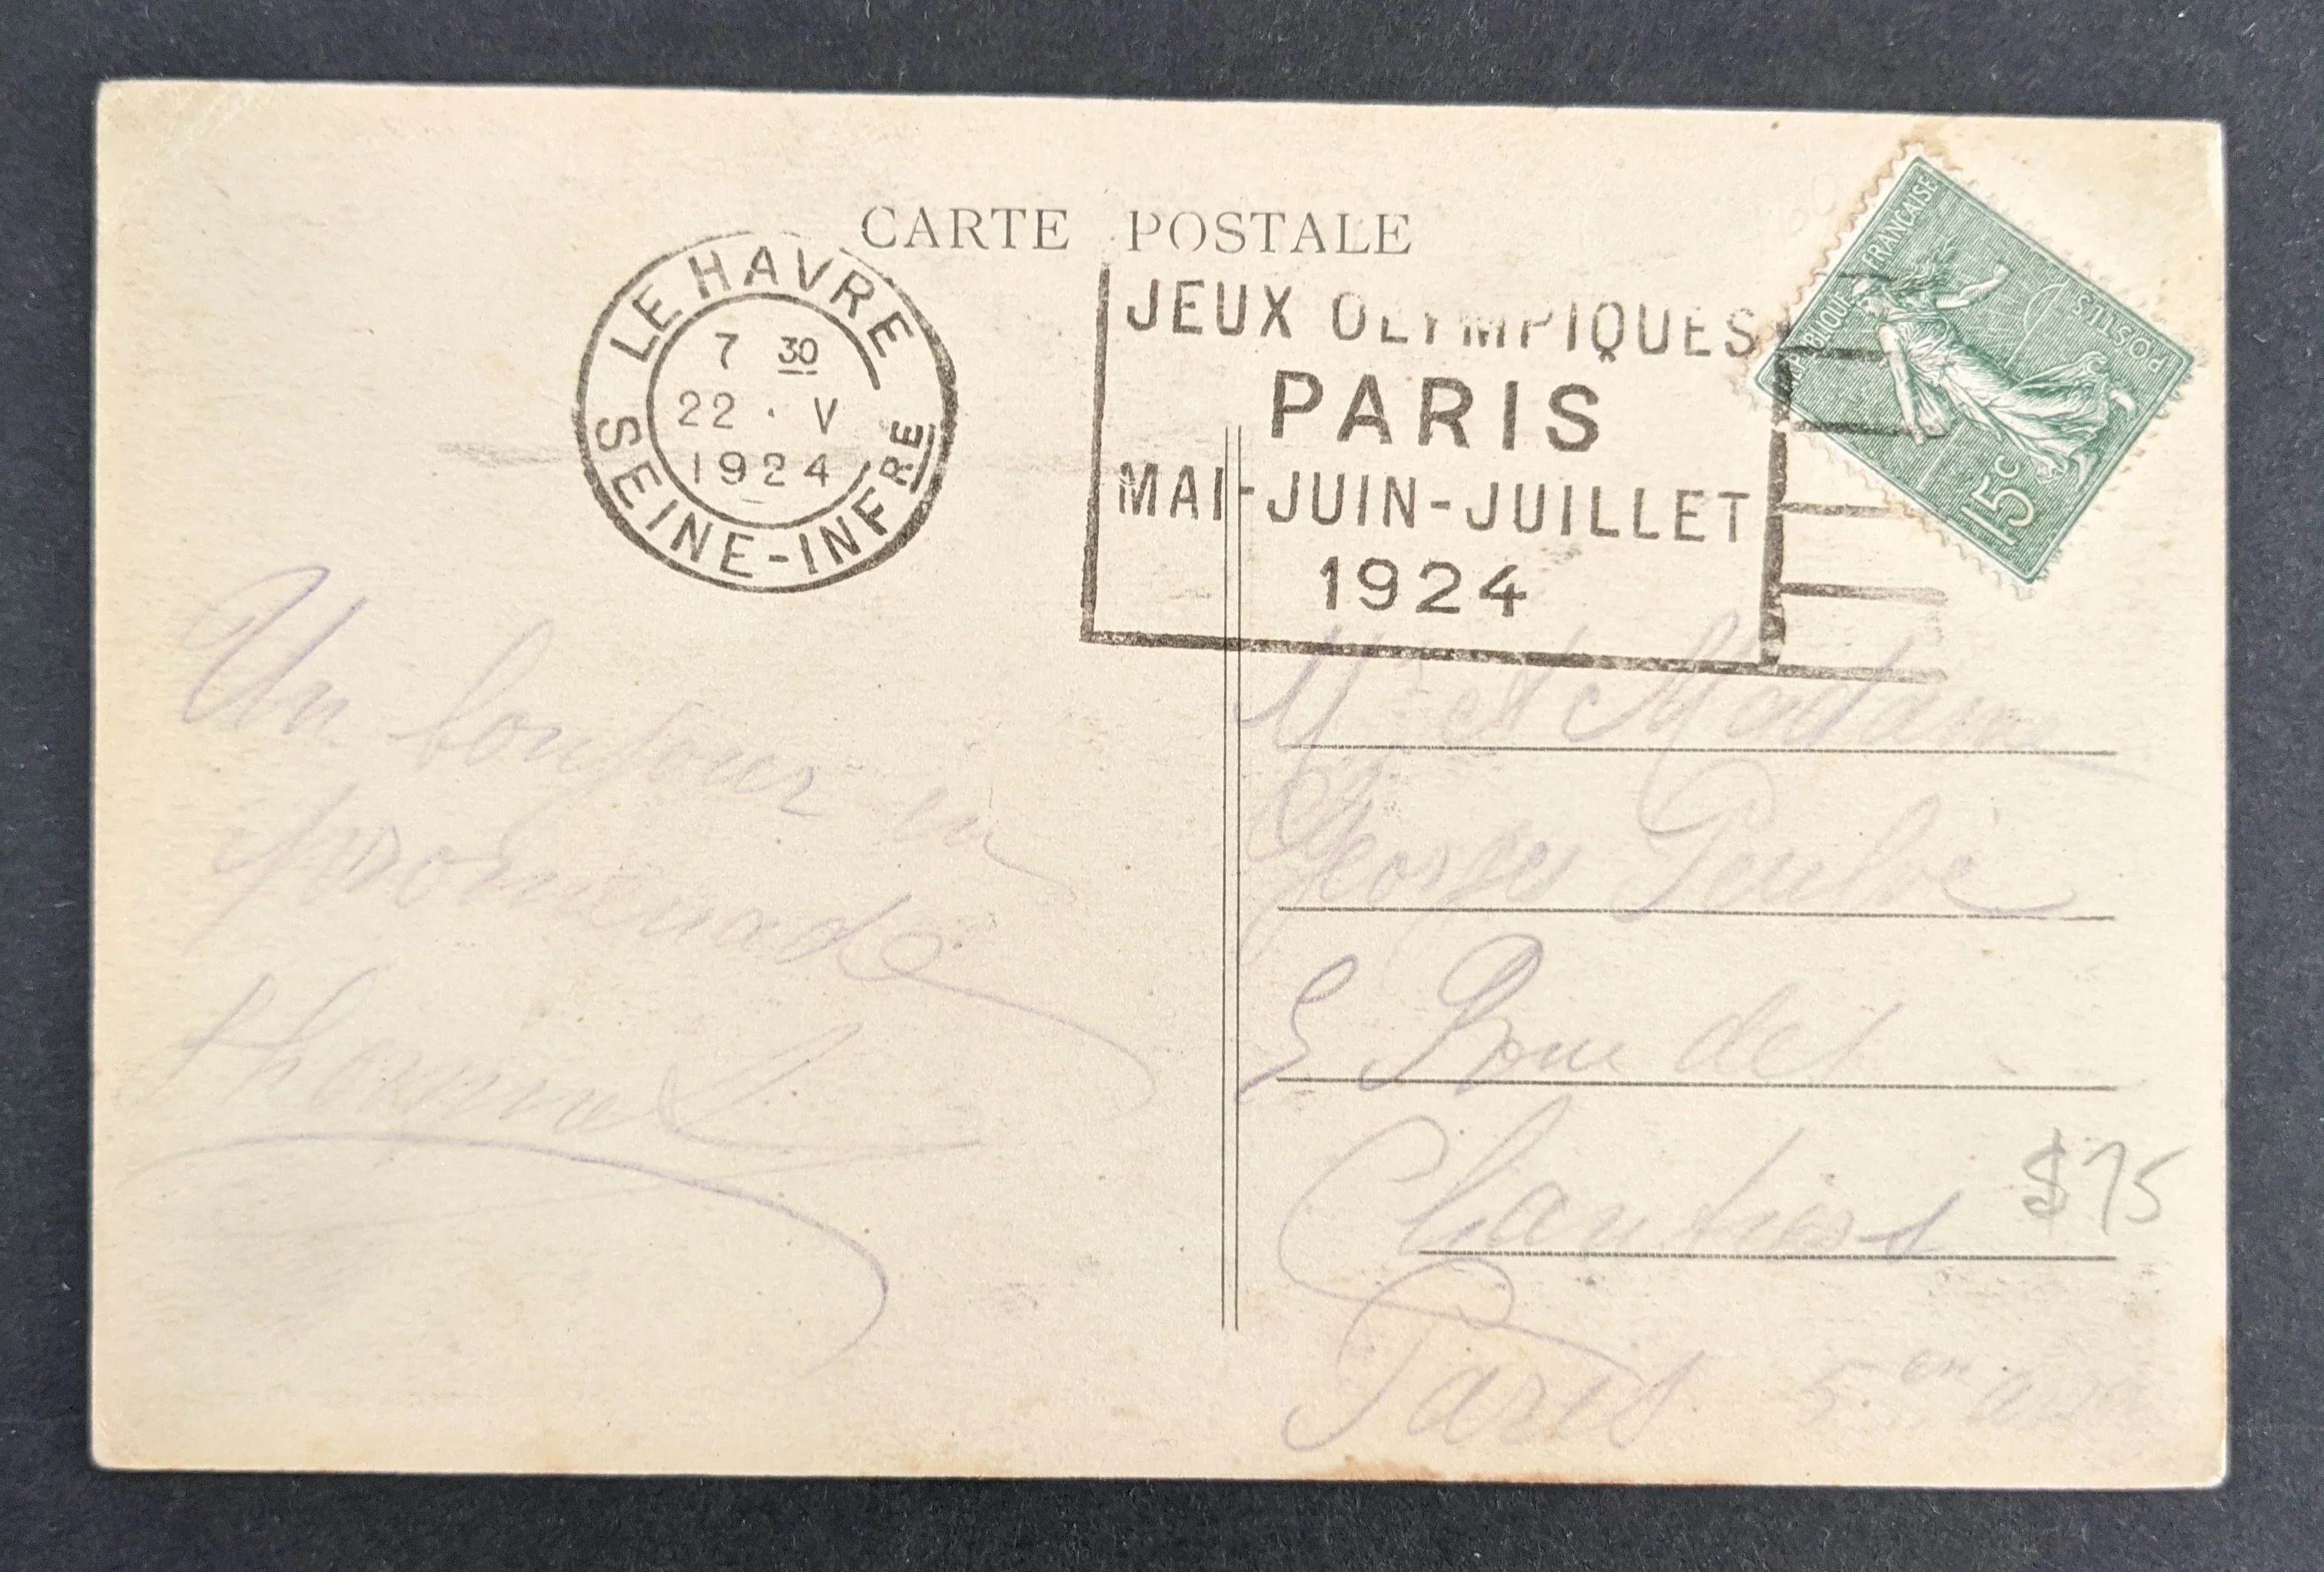 CARTE POSTALE
LE HAVRE
7 30
22 · V
1924
SEINE-INFRE
JEUX OLYMPIQUES
PARIS
MAI-JUIN-JUILLET
1924
REPUBLIQUE FRANÇAISE
POSTES
15c
Un bonjour en
promenade
Mr et Madame
Georges
5 Rue des
Chantiers
$75
Paris 5em